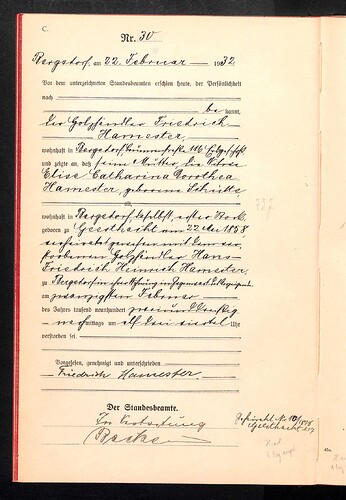 C.
Nr. 30
Bergedorf, am 22. Februar 1932
Vor dem unterzeichneten Standesbeamten erschien heute, der Persönlichkeit
nach
be kannt,
der Holzhändler Friedrich
Hamester,
wohnhaft in Bergedorf, 116
und zeigte an, daß seine Mutter, die Witwe
Elise Catharina Dorothea
Hamester, geborene
alt,
wohnhaft in Bergedorf, daselbst, erster Stock
geboren zu Geesthacht am 22. 1858
verheiratet gewesen mit dem ver-
storbenen Holzhändler Hans
Friedrich Heinrich Hamester,
zu Bergedorf in
am zwanzigsten Februar
des Jahres tausend neunhundert zweiunddreißig
nachmittags um Uhr
verstorben sei.
Vorgelesen, genehmigt und unterschrieben
Friedrich Hamester.
Der Standesbeamte.
In Vertretung
Geheiratet N. 10/1878
Geesthacht